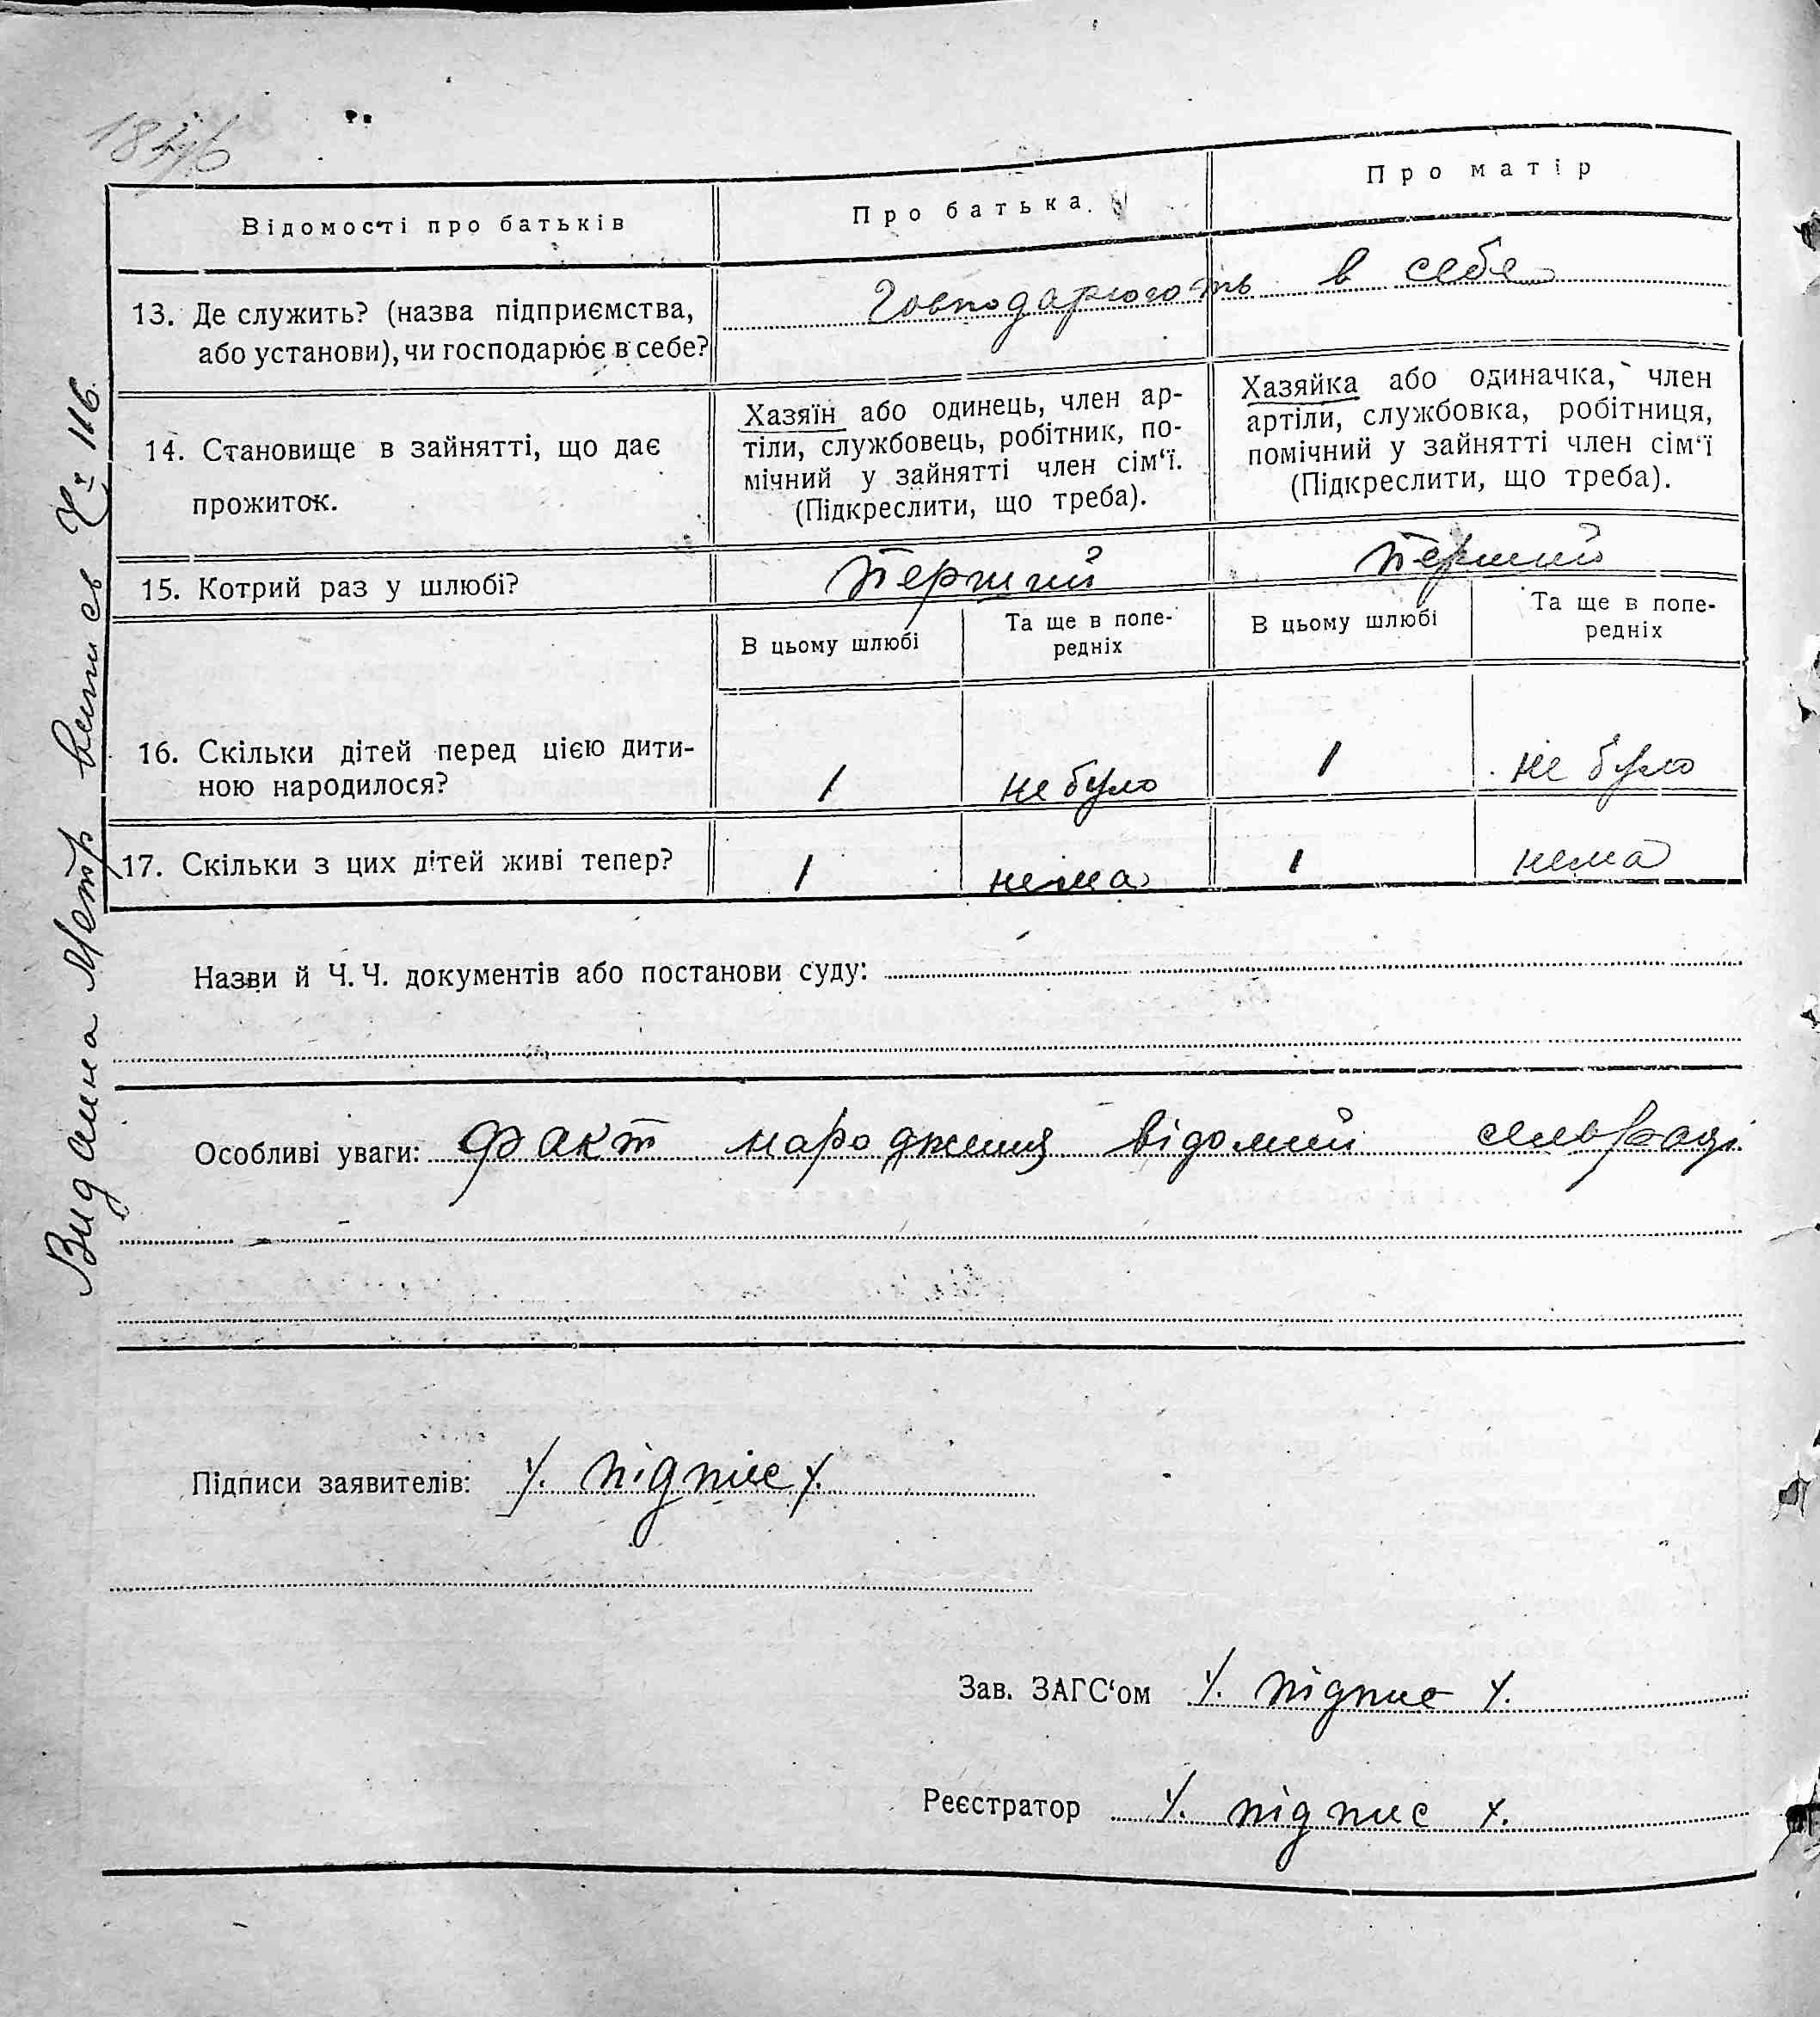 Відомості про батьків
Про батька
Про матір
13. Де служить? (назва підприємства,
або установи), чи господарює в себе?
Господарюють в себе
14. Становище в зайнятті, що дає
прожиток.
Хазяїн або одинець, член ар-
тіли, службовець, робітник, по-
мічний у зайнятті член сім‘ї.
(Підкреслити, що треба).
Хазяйка або одиначка, член
артіли, службовка, робітниця,
помічний у зайнятті член сім‘ї
(Підкреслити, що треба).
15. Котрий раз у шлюбі?
Перший
Перший
В цьому шлюбі
Та ще в попе-
редніх
В цьому шлюбі
Та ще в попе-
редніх
16. Скільки дітей перед цією дити-
ною народилося?
1
не було
1
не було
17. Скільки з цих дітей живі тепер?
1
нема
1
нема
Назви й Ч. Ч. документів або постанови суду:
Особливі уваги: Факт народження відомий сельраді
Підписи заявителів: /. підпис /.
Зав. ЗАГС‘ом /. підпис /.
Реєстратор /. підпис /.
Видана Метр випись Ч 116.